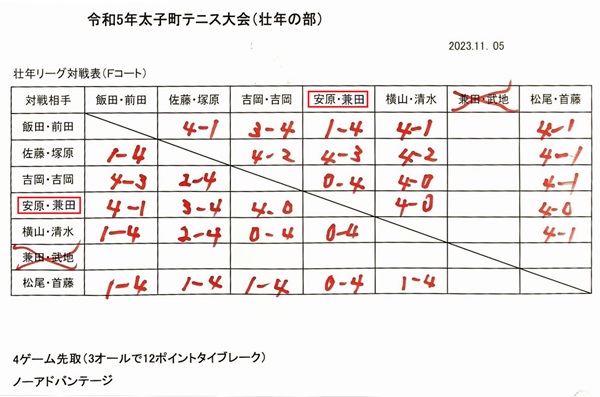 令和5年太子町テニス大会(壮年の部)
2023.11. 05
壮年リーグ対戦表(Fコート)
対戦相手 飯田・前田 佐藤・塚原 吉岡・吉岡 安原・兼田 横山・清水 兼田・武地 松尾・首藤
飯田・前田 4-1 3-4 1-4 4-1 4-1
佐藤・塚原 1-4 4-2 4-3 4-2 4-1
吉岡・吉岡 4-3 2-4 0-4 4-0 4-1
安原・兼田 4-1 3-4 4-0 4-0 4-0
横山・清水 1-4 2-4 0-4 0-4 4-1
兼田・武地
松尾・首藤 1-4 1-4 1-4 0-4 1-4
4ゲーム先取(3オールで12ポイントタイブレーク)
ノーアドバンテージ